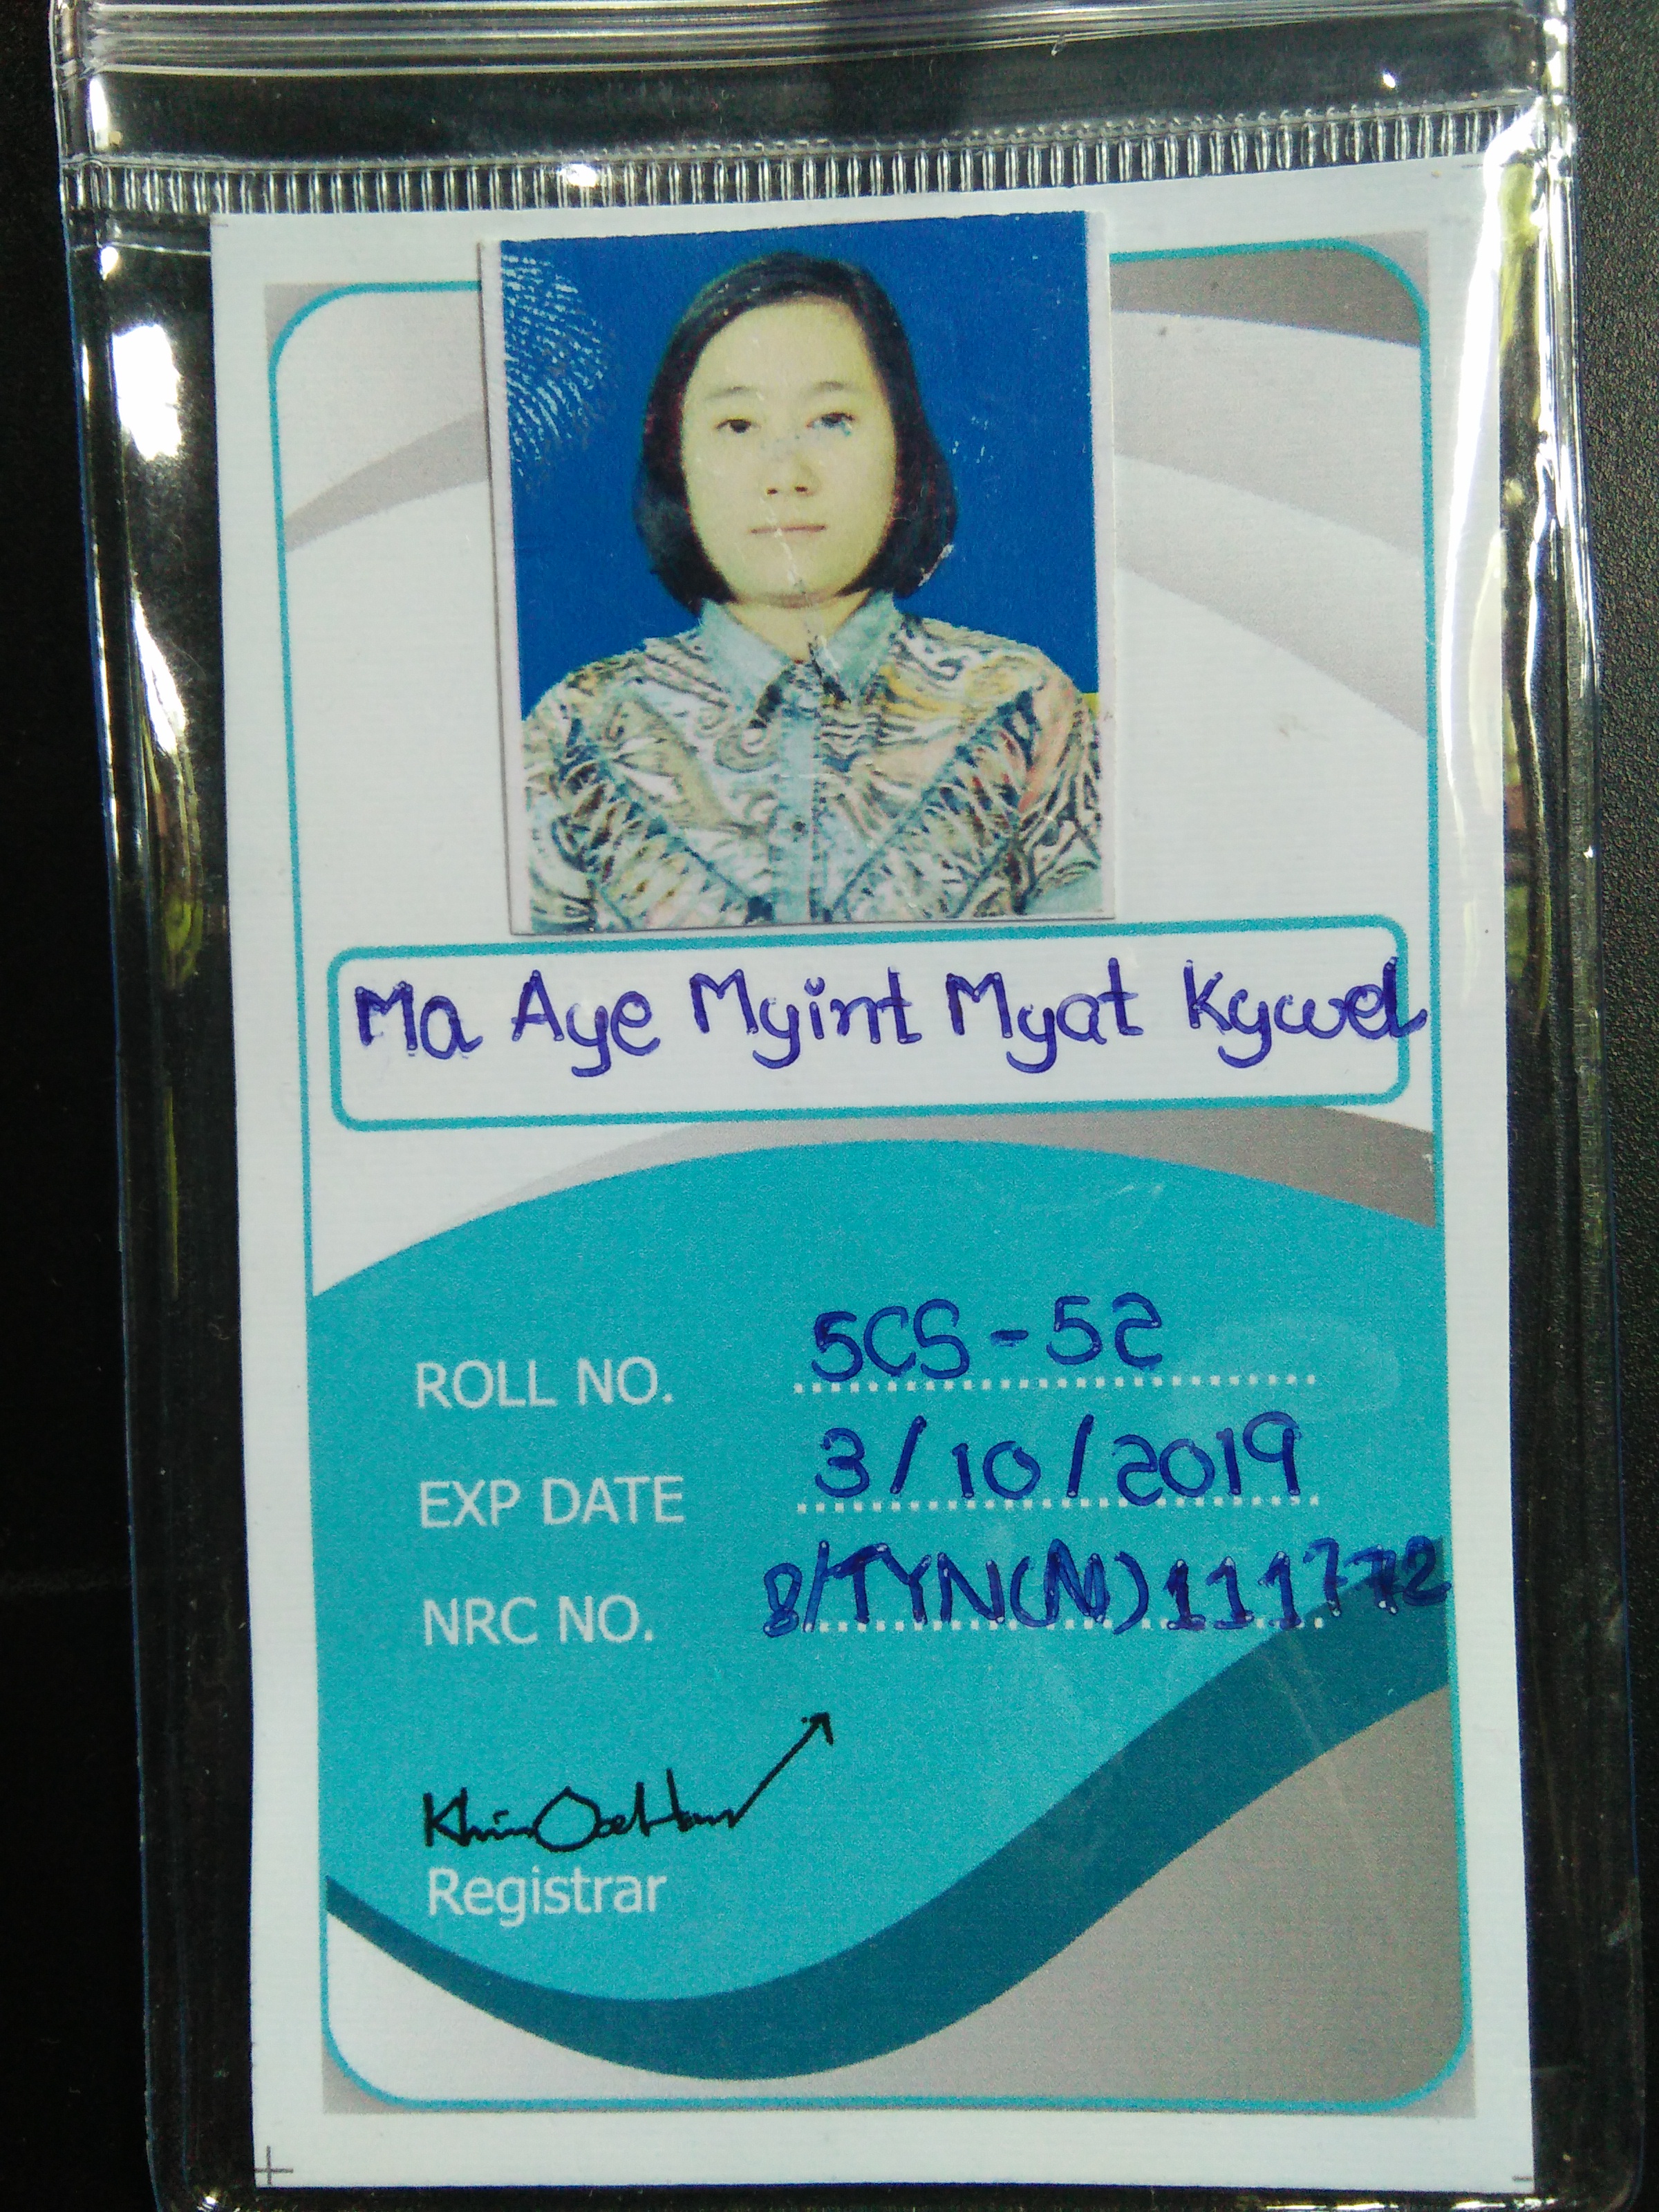 Ma Aye Myint Myat Kywel
ROLL NO. 5CS-52
EXP DATE 3/10/2019
NRC NO. 8/TYN(N)111772
Registrar